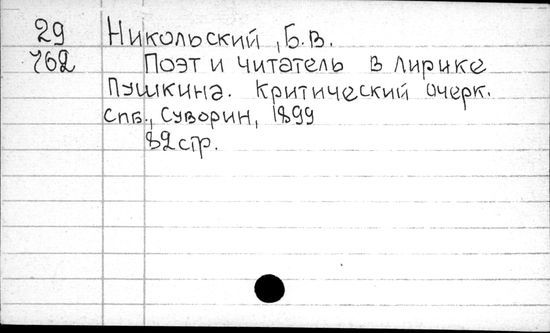 29 Никольский, Б.В.
762 Поэт и читатель в лирике
Пушкина. Критический очерк.
Спб., Суворин, 1899
82 стр.